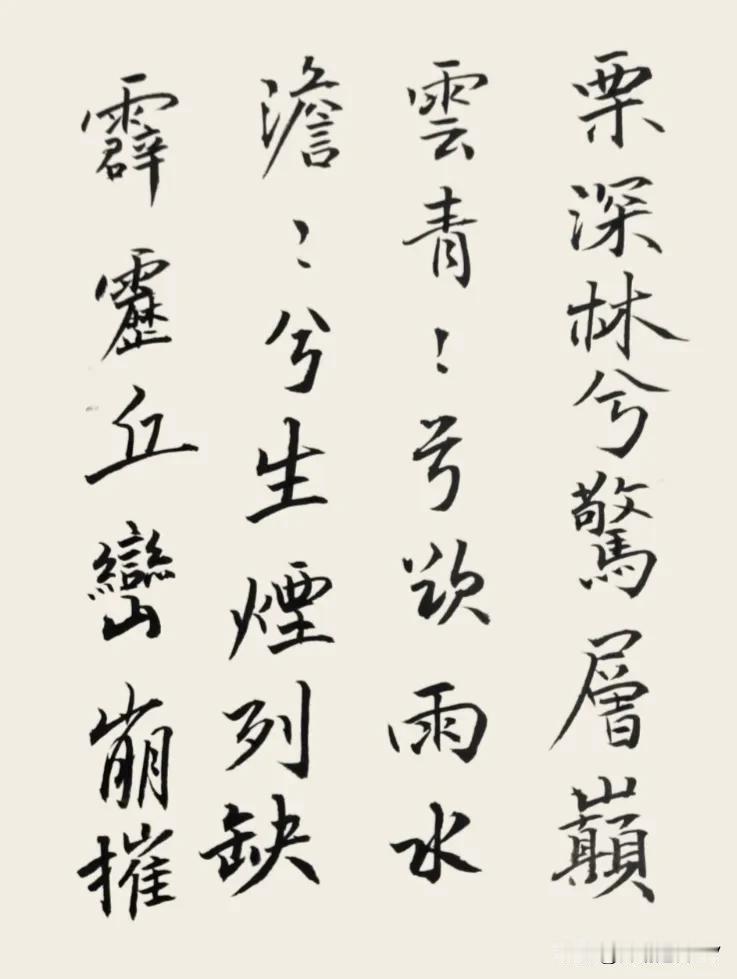 栗深林兮驚層巔
雲青〻兮欲雨水
澹〻兮生煙列缺
霹靂丘巒崩摧